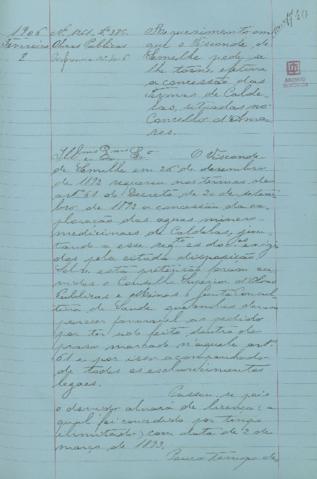 1906
Fevereiro
2
Nº 1261, Lº 386
Obras Publicas
Requerimento em
que o Visconde de
Semelhe pede se
lhe torne efectiva
a concessão das
Termas de Caldel-
las, situadas no
Concelho d'Ama-
res.
O Visconde
de Semelhe em 26 de dezembro
de 1892 requereu nos termos do
artº 61 do Decreto de 30 de setem-
bro de 1892 a concessão da ex-
ploração das aguas minero-
medicinaes de Caldelas, jun-
tando a esse reqtº os docºs exigi-
dos pela citada disposição.
Sobre esta pretenção foram ou-
vidos o Conselho Superior d'Obras
Publicas e Minas e Junta Consul-
tiva de Saude que ambos deram
parecer favoravel ao pedido
por ter sido feito dentro do
praso marcado n'aquele artº
61 e por isso acompanhado
de todos os esclarecimentos
legaes.
Passou-se pois
o devido alvará de licença, a
qual foi concedida por tempo
illimitado, com data de 2 de
março de 1893.
Pouco tempo de